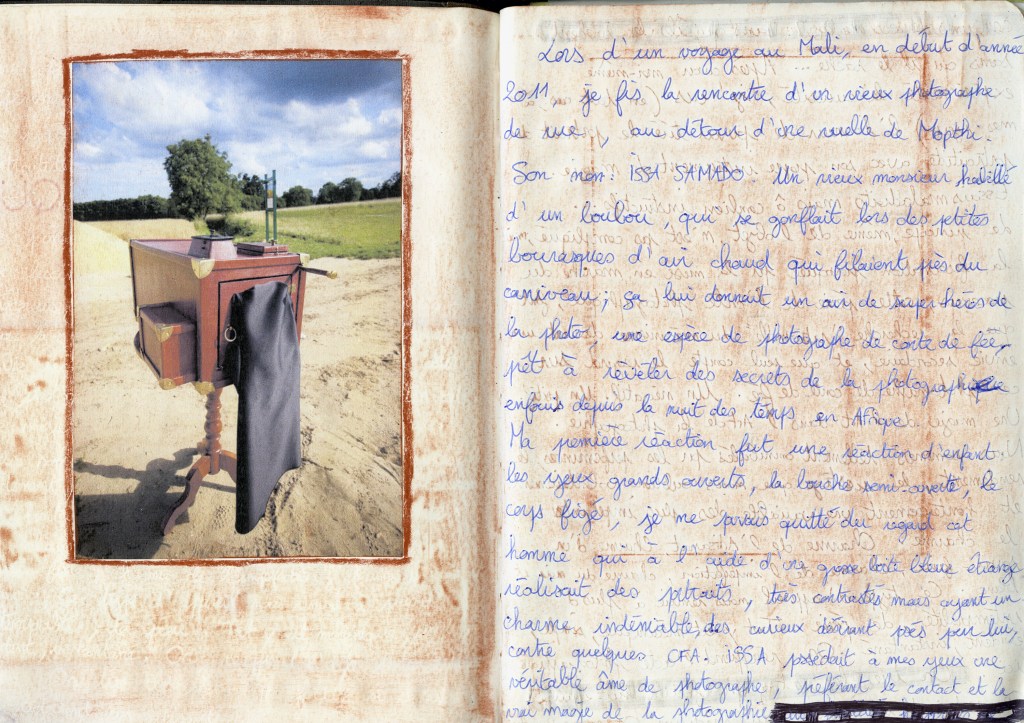 Lors d'un voyage au Mali, en début d'année
2011, je fis la rencontre d'un vieux photographe
de rue, au détour d'une ruelle de Mopthi.
Son nom : ISSA SAMADO. Un vieux monsieur habillé
d'un boubou, qui se gonflait lors des ptites
bourasques d'air chaud qui filaient près du
caniveau ; ça lui donnait un air de super-héros de
la photo, une espèce de photographe de conte de fée,
prêt à révéler des secrets de la photographie
enfouis depuis la nuit des temps en Afrique.
Ma première réaction fut une réaction d'enfant
les yeux grands ouverts, la bouche semi-ouverte, le
corps figé, je ne pouvais quitté du regard cet
homme qui à l'aide d'une grosse boîte bleue étrange
réalisait des portraits, très contrastés mais ayant un
charme indéniable, des curieux désirant posés pour lui,
contre quelques CFA. ISSA possédait à mes yeux une
véritable âme de photographe, préférant le contact et la
vrai magie de la photographie